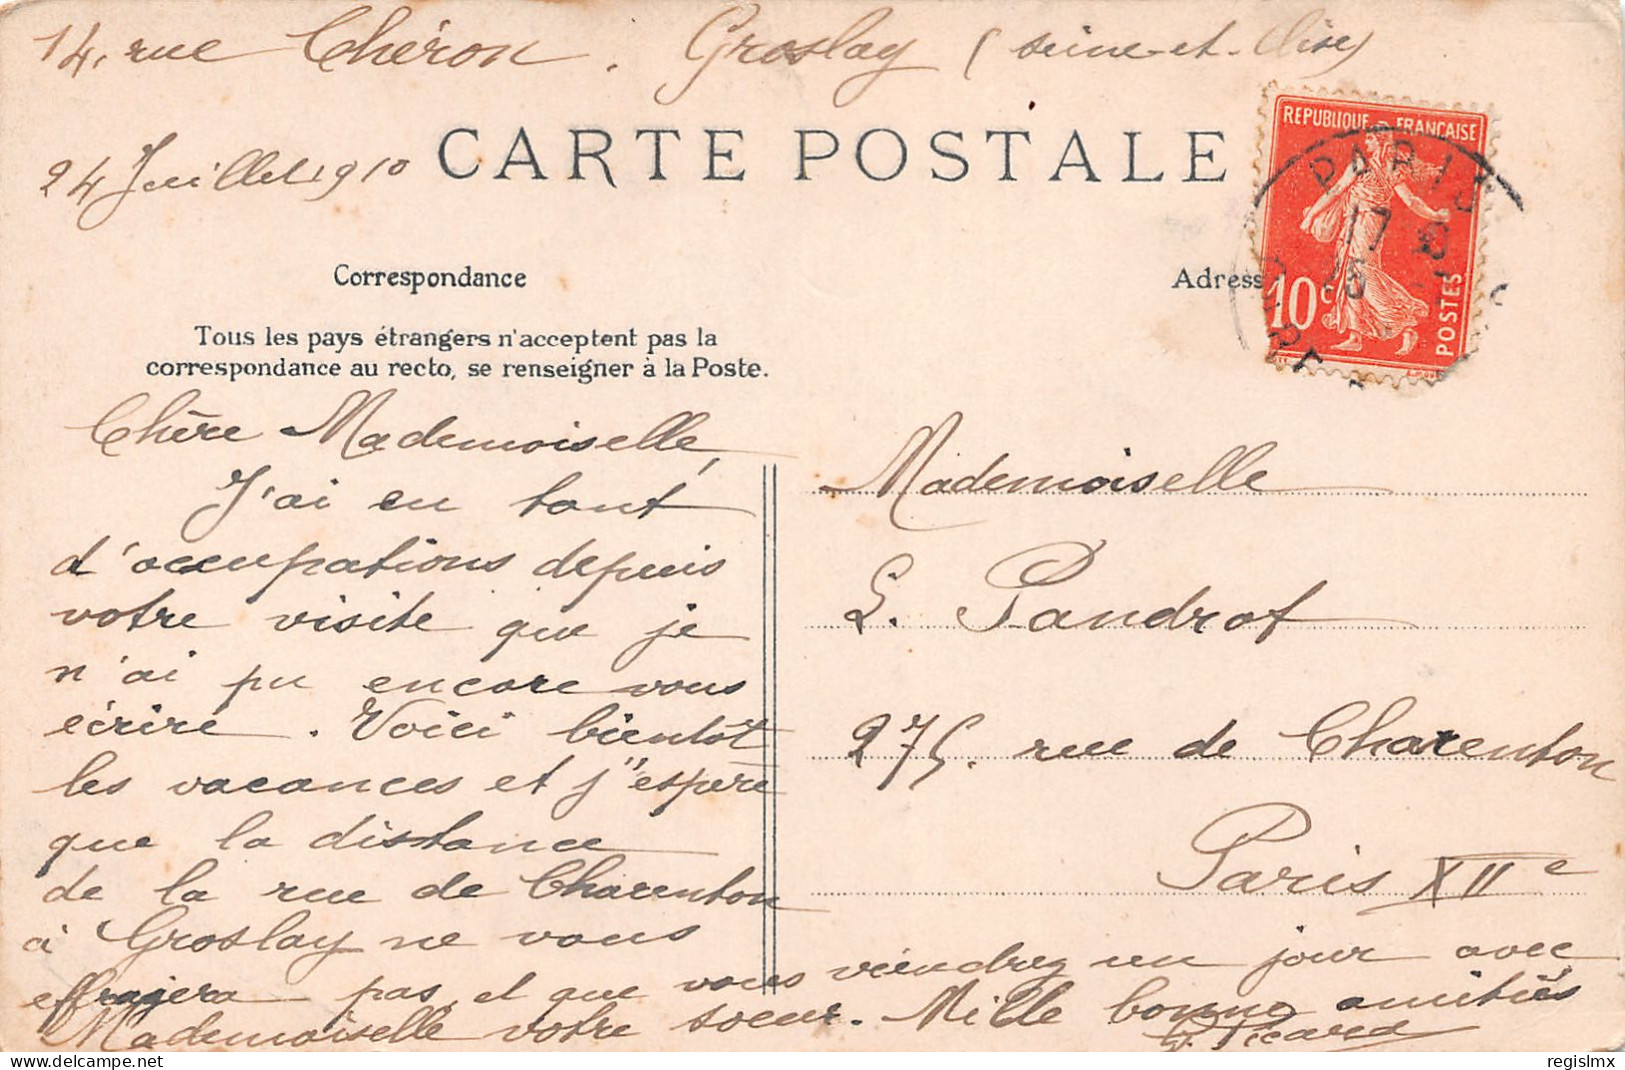 14, rue Chéron. Groslay (Seine-et-Oise)
CARTE POSTALE
24 Juillet 1910
REPUBLIQUE FRANÇAISE
PARIS
17
10c
POSTES
Correspondance
Adress
Tous les pays étrangers n'acceptent pas la
correspondance au recto, se renseigner à la Poste.
Chère Mademoiselle,
J'ai eu tant
d'occupations depuis
votre visite que je
n'ai pu encore vous
écrire. Voici bientôt
les vacances et j'espère
que la distance
de la rue de Charenton
à Groslay ne vous
effrayera pas, et que vous viendrez un jour avec
Mademoiselle votre soeur. Mille bonnes amitiés
Picard
Mademoiselle
L. Pandrot
275. rue de Charenton
Paris XIIe
regislmx